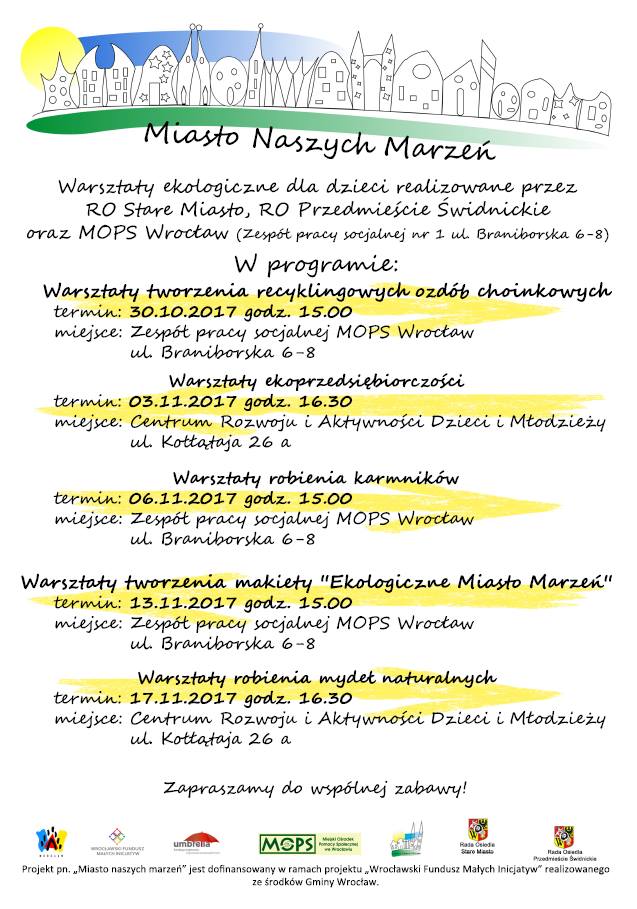 Miasto Naszych Marzeń
Warsztaty ekologiczne dla dzieci realizowane przez
RO Stare Miasto, RO Przedmieście Świdnickie
oraz MOPS Wrocław (Zespół pracy socjalnej nr 1 ul. Braniborska 6-8)
W programie:
Warsztaty tworzenia recyklingowych ozdób choinkowych
termin: 30.10.2017 godz. 15.00
miejsce: Zespół pracy socjalnej MOPS Wrocław
ul. Braniborska 6-8
Warsztaty ekoprzedsiębiorczości
termin: 03.11.2017 godz. 16.30
miejsce: Centrum Rozwoju i Aktywności Dzieci i Młodzieży
ul. Kołłątaja 26 a
Warsztaty robienia karmników
termin: 06.11.2017 godz. 15.00
miejsce: Zespół pracy socjalnej MOPS Wrocław
ul. Braniborska 6-8
Warsztaty tworzenia makiety "Ekologiczne Miasto Marzeń"
termin: 13.11.2017 godz. 15.00
miejsce: Zespół pracy socjalnej MOPS Wrocław
ul. Braniborska 6-8
Warsztaty robienia mydeł naturalnych
termin: 17.11.2017 godz. 16.30
miejsce: Centrum Rozwoju i Aktywności Dzieci i Młodzieży
ul. Kołłątaja 26 a
Zapraszamy do wspólnej zabawy!
WROCŁAW
WROCŁAWSKI FUNDUSZ
MAŁYCH INICJATYW
umbrella
MOPS
Miejski Ośrodek
Pomocy Społecznej
we Wrocławiu
Rada Osiedla
Stare Miasto
Rada Osiedla
Przedmieście Świdnickie
Projekt pn. „Miasto naszych marzeń” jest dofinansowany w ramach projektu „Wrocławski Fundusz Małych Inicjatyw” realizowanego
ze środków Gminy Wrocław.